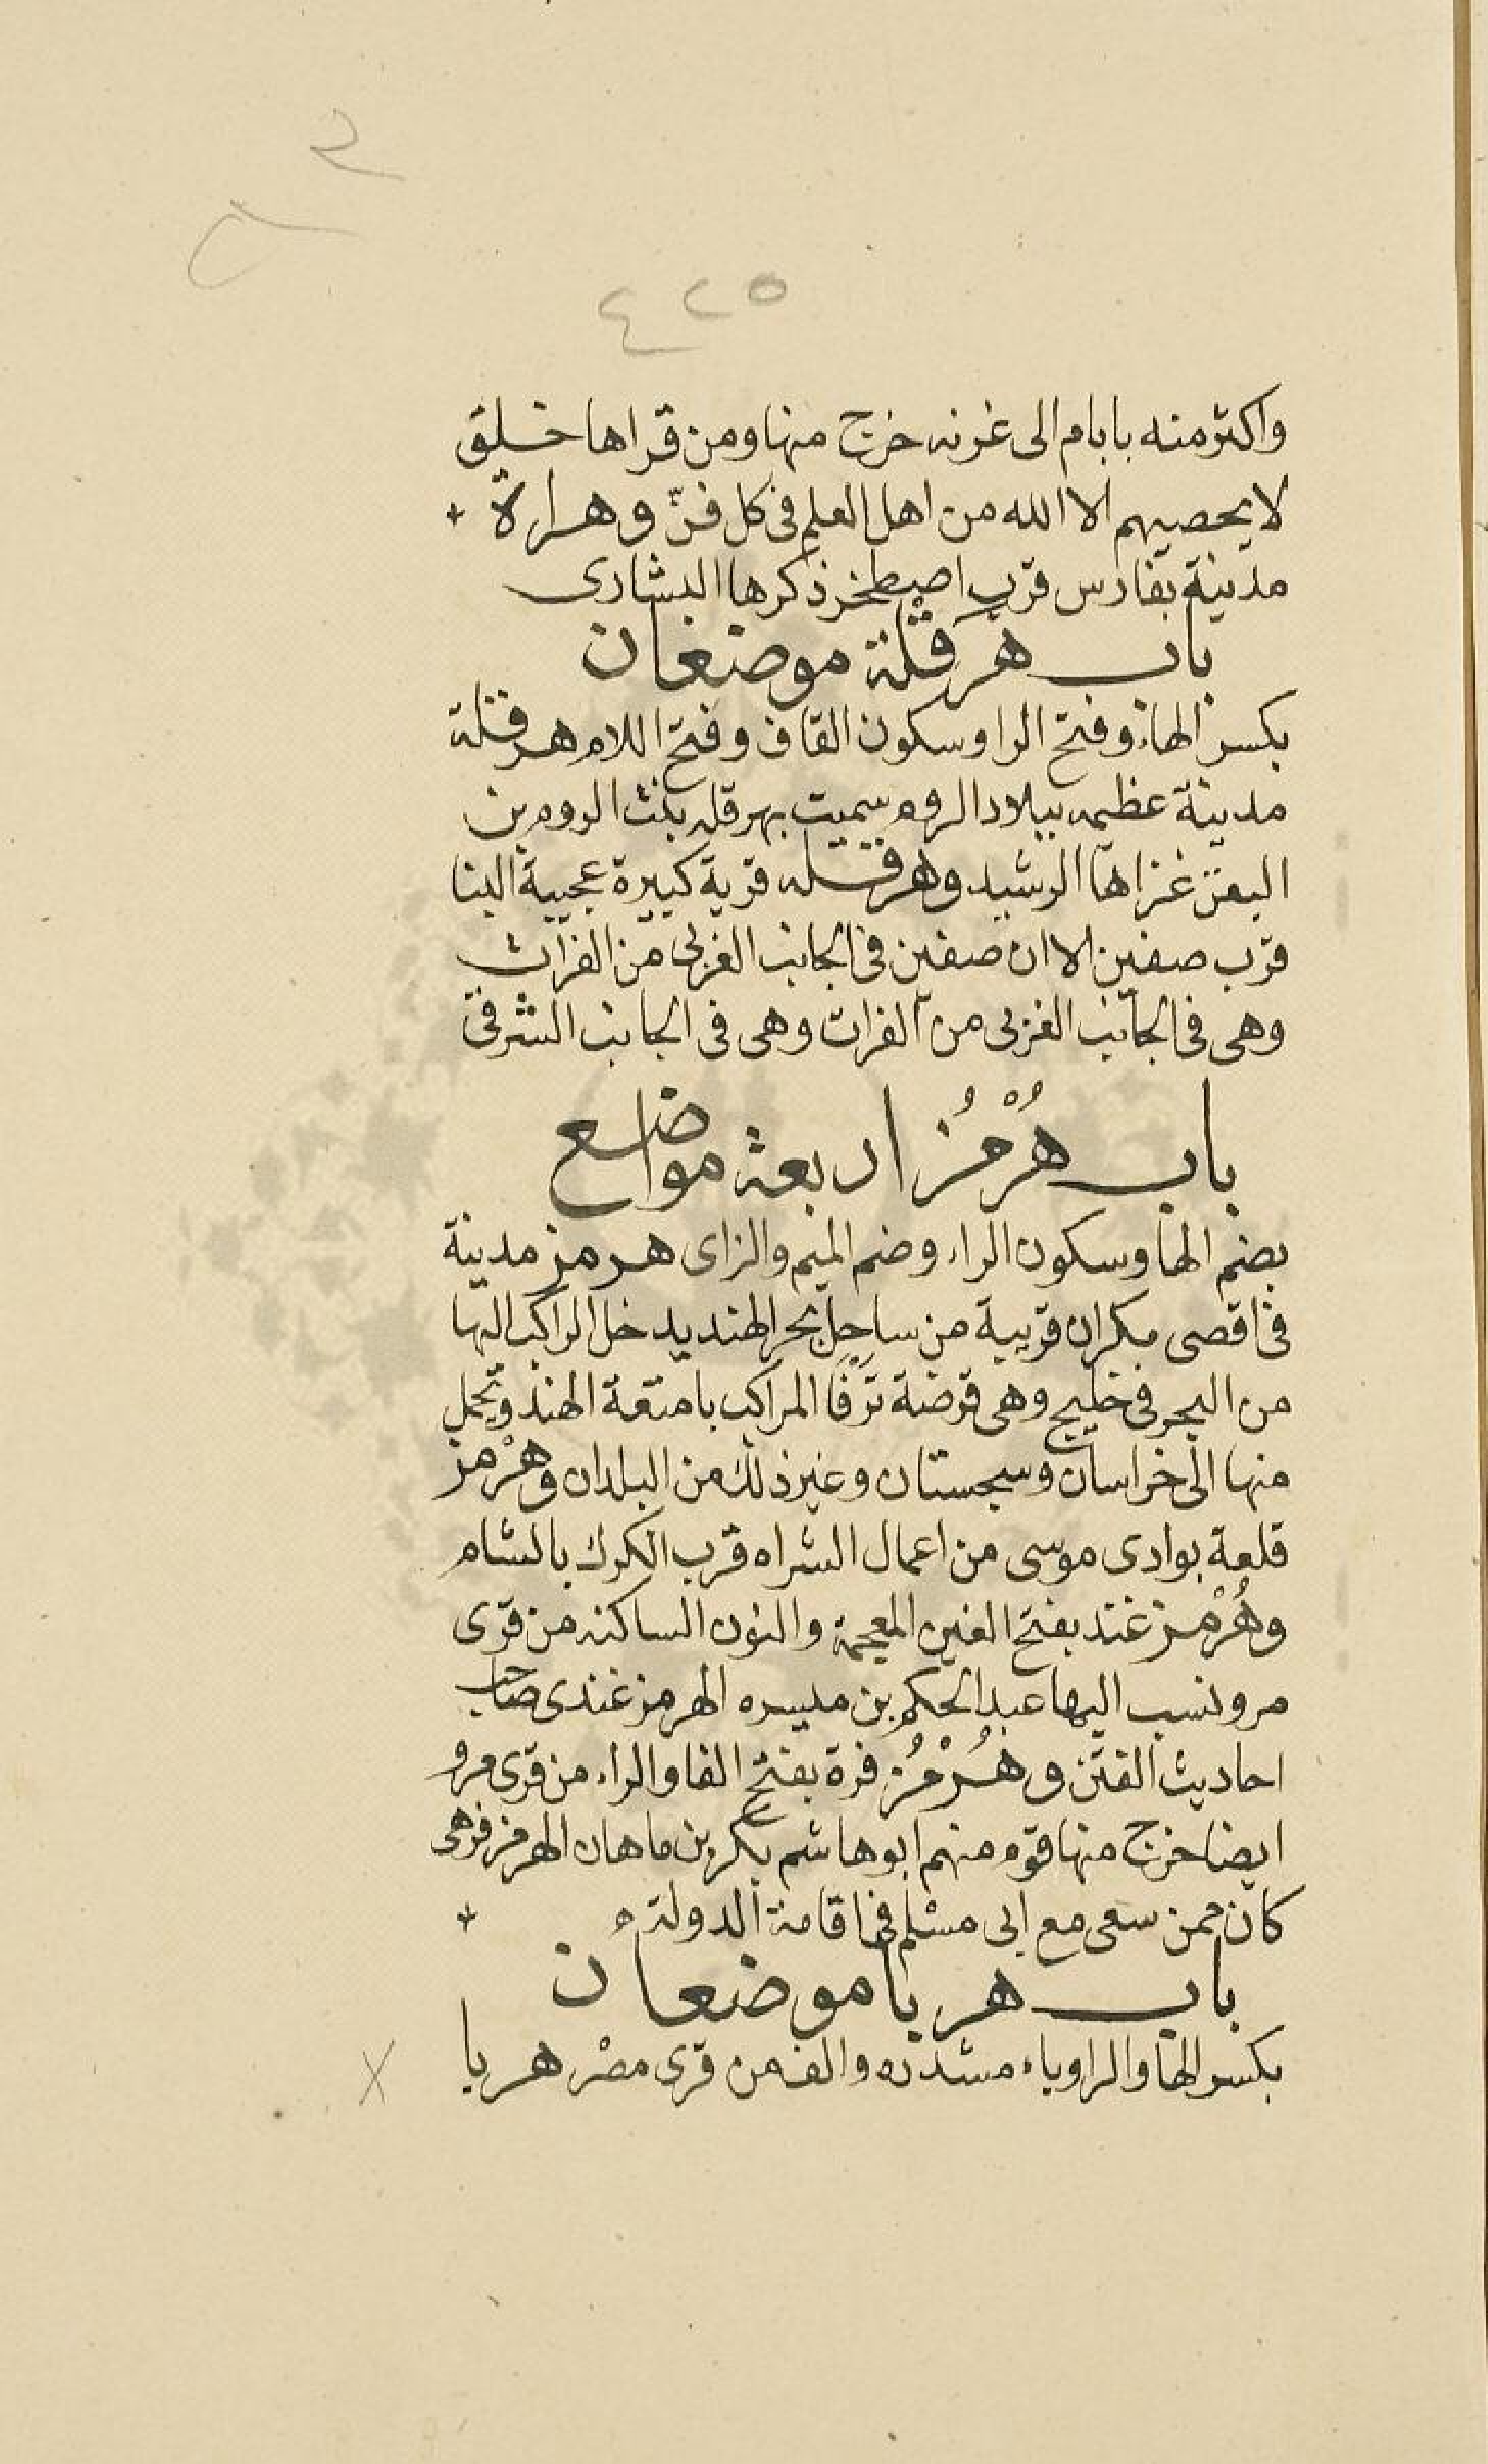 ٤٢٥
واكثر منه بابام الى غزنه خرج منها ومن قراها خلق
لا يحصيهم الا الله من اهل العلم فى كل فنّ وهراة
مدينة بفارس قرب اصطخر ذكرها البشارى
باب هرَقْلة موضعان
بكسر الهاء وفتح الرا وسكون القاف وفتح اللام هرقلة
مدينة عظيمه ببلاد الروم سميت بهرقله بنت الروم بن
اليفن غزاها الرشيد وهرقله قرية كبيرة عجيبة البنا
قرب صفين الا ان صفين فى الجانب الغربى من الفرات
وهى فى الجانب الغربى من الفرات وهى فى الجانب الشرقى
باب هُرْمُز اربعة مواضع
بضم الها وسكون الراء وضم الميم والزاى هرمز مدينة
فى اقصى مكران قريبة من ساحل بحر الهند يدخل المراكب اليها
من البحر فى خليج وهى فرضة تَرْفَا المراكب بامتعة الهند وتحمل
منها الى خراسان وسجستان وغير ذلك من البلدان وهُرْمز
قلعة بوادى موسى من اعمال الشراه قرب الكرك بالشام
وهُرْمز غند بفتح الغين المعجمة والنون الساكنه من قرى
مرو نسب اليها عبد الحكم بن ميسره الهرمز غندى صاحب
احاديث الفتن وهُرْمُز فرة بفتح الفا والراء من قرى مرو
ايضا خرج منها قوم منهم ابو هاشم بكر بن ماهان الهرمز فرهى
كان ممن سعى مع ابى مسلم فى اقامة الدولة
باب هريا موضعان
بكسر الها والرا وياء مشدده والف من قرى مصر هريا